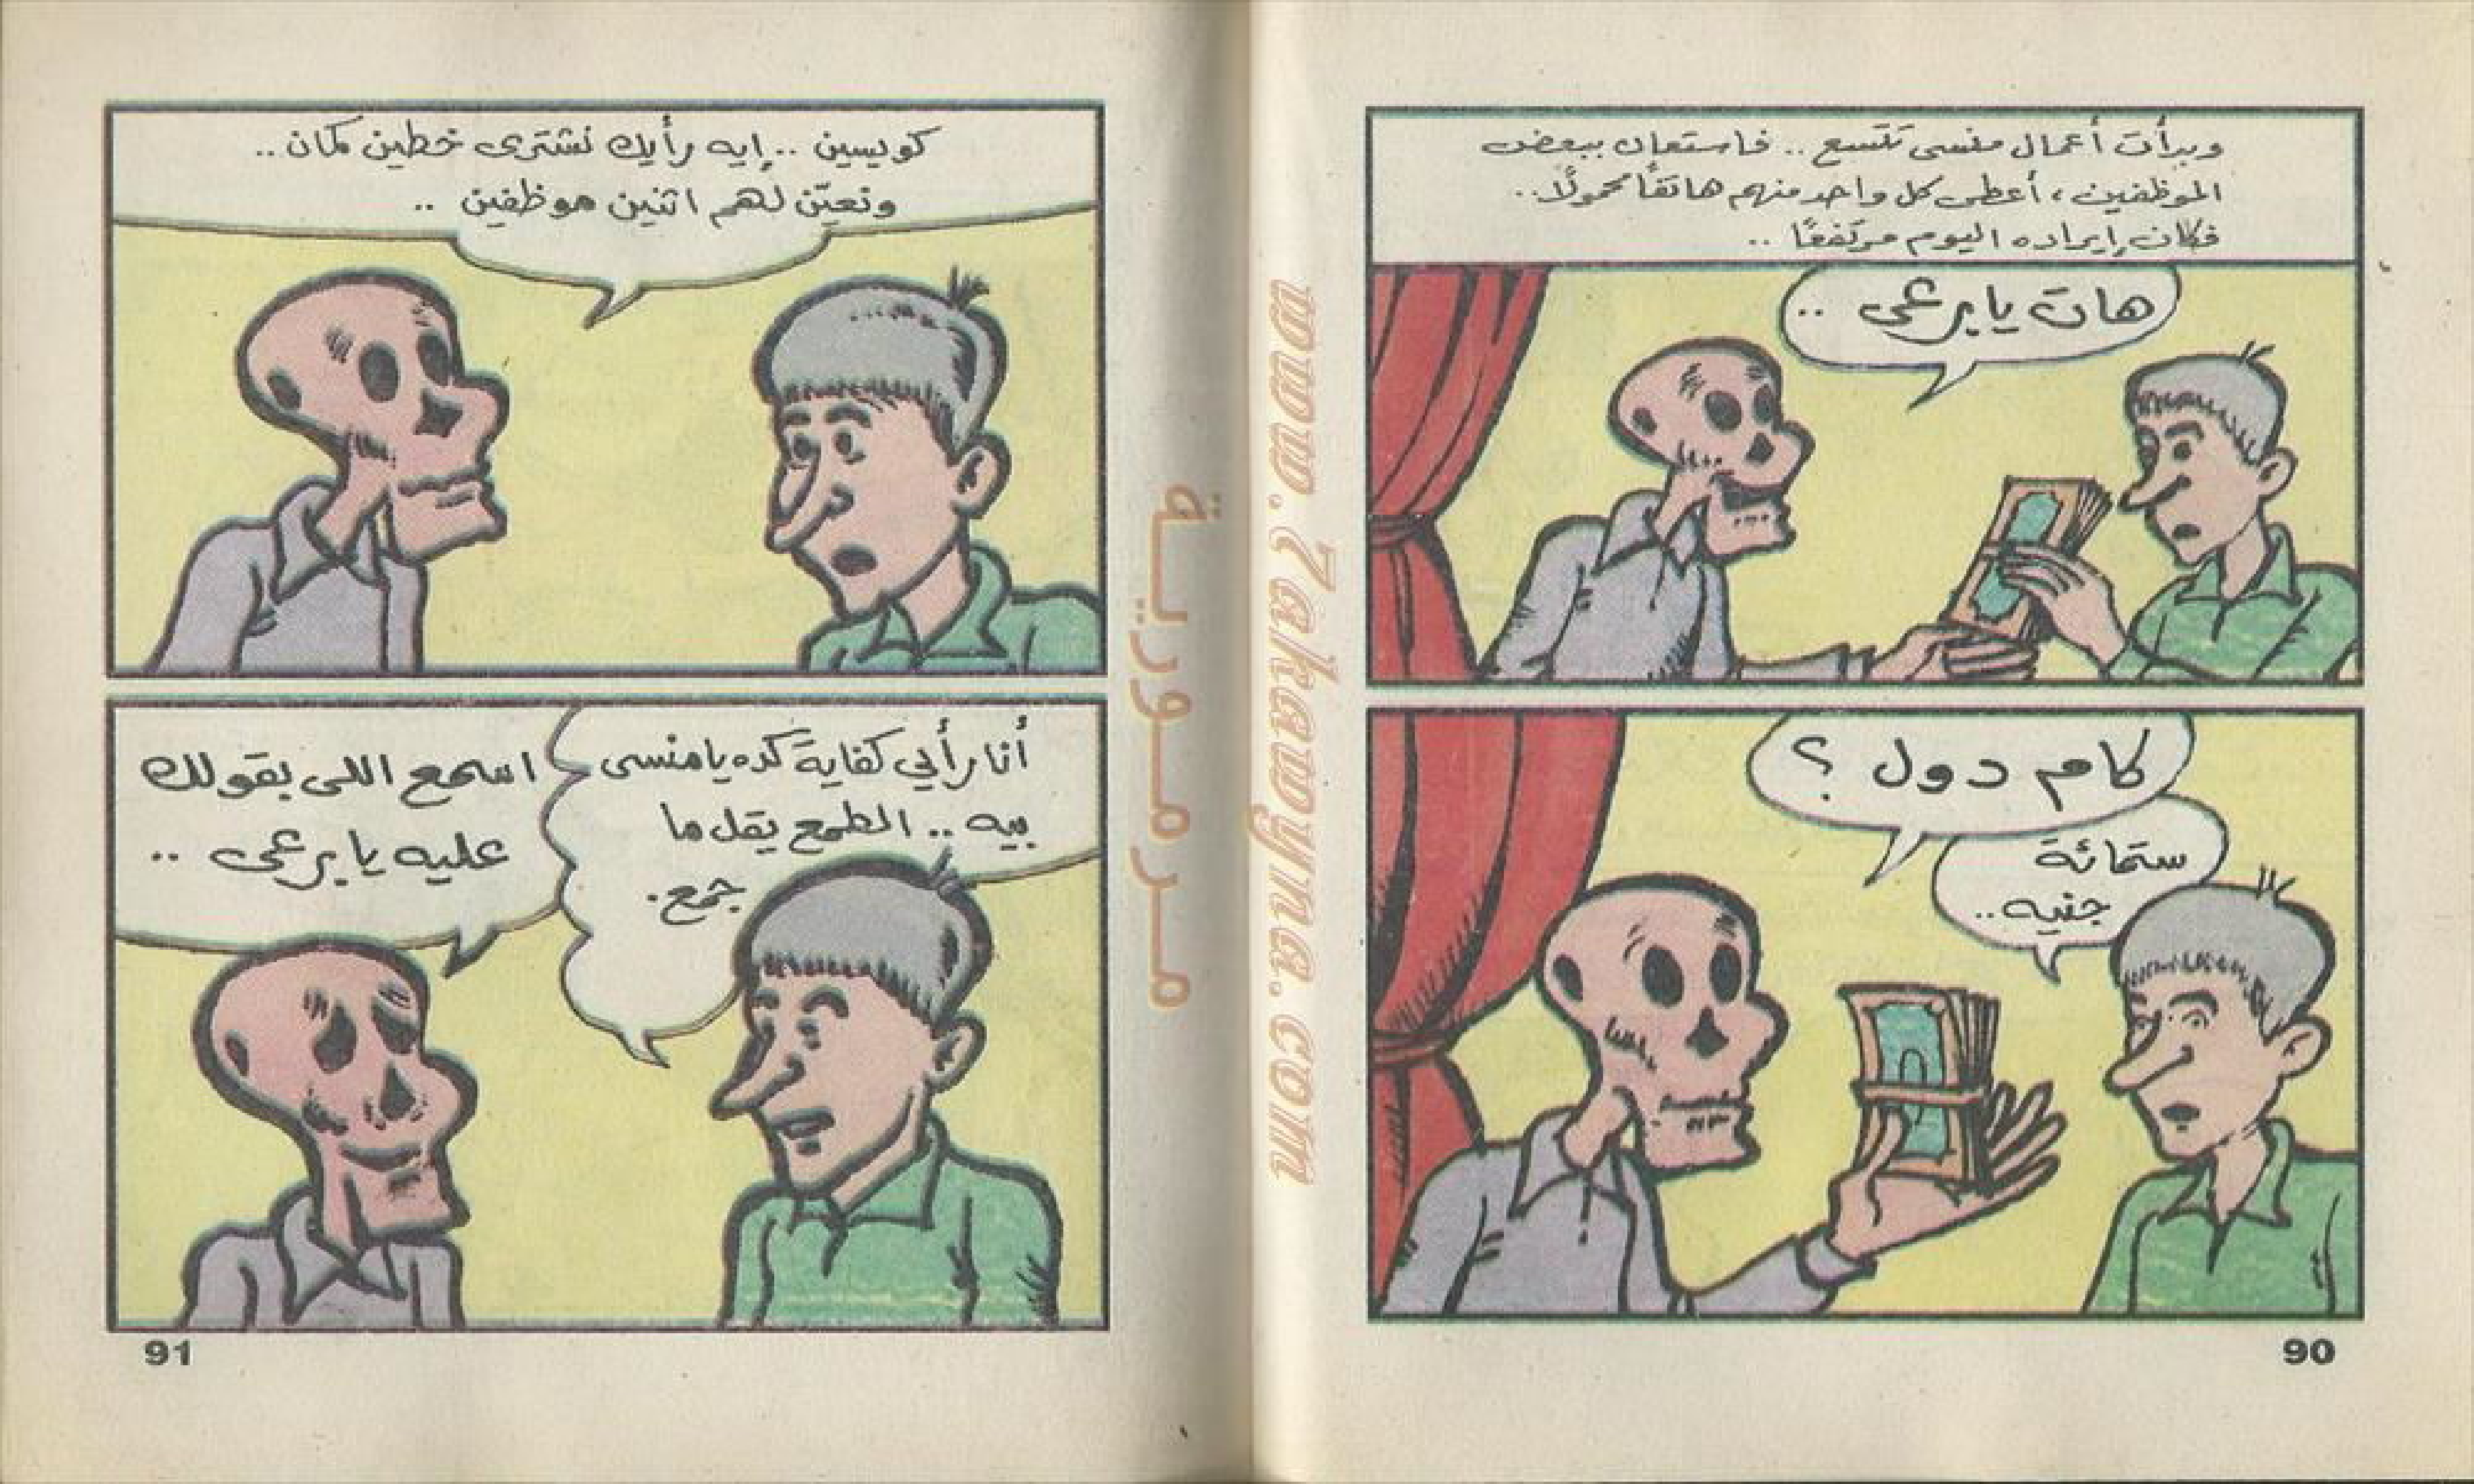 وبدأت أعمال منسى تتسع .. فاستعان ببعض
الموظفين، أعطى كل واحد منهم هاتفًا محمولًا..
فكان إيراده اليوم مرتفعًا ..
هات يا برعى ..
كام دول ؟
ستمائة
جنيه..
90
كويسين .. إيه رأيك نشترى خطين كمان ..
ونعيّن لهم اتنين موظفين ..
أنا رأيي كفاية كده يا منسى
بيه .. الطمع يقل ما
جمع.
اسمع اللى بقولك
عليه يا برعى ..
91
مرمورية
www.7akawyna.com